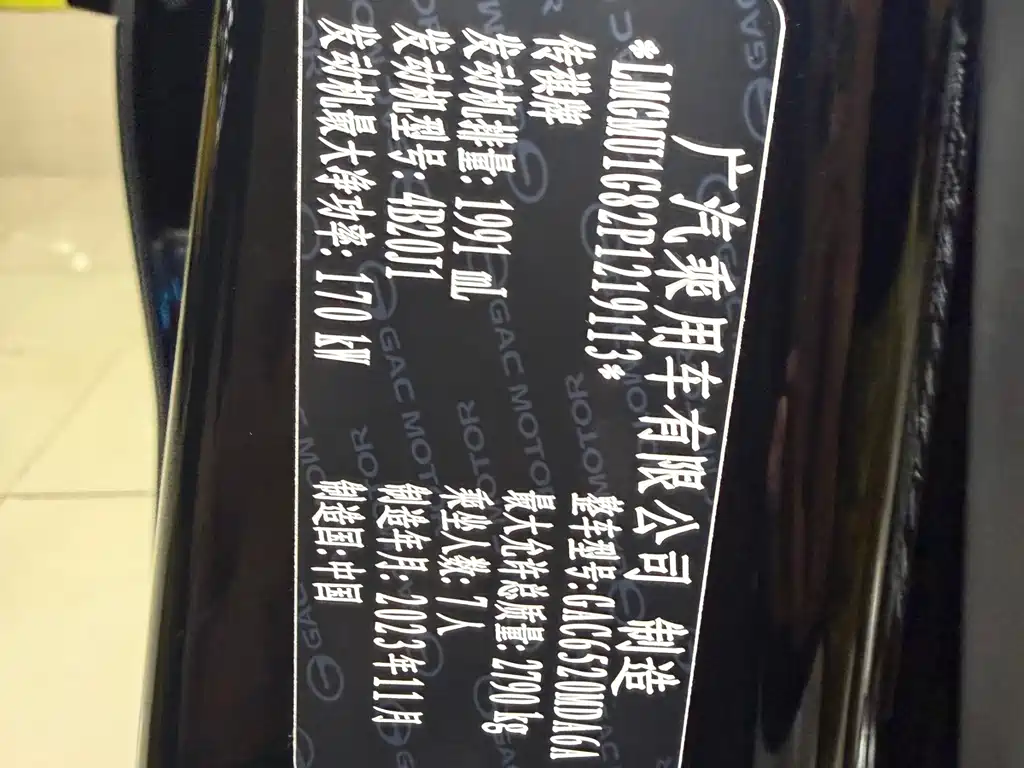 广汽乘用车有限公司 制造
*LMGMU1G82P1219113*
传祺牌 整车型号:GAC6520MDA6A
发动机排量: 1991 mL 最大允许总质量: 2790 kg
发动机型号: 4B20J1 乘坐人数: 7人
发动机最大净功率: 170 kW 制造年月: 2023年11月
制造国:中国
GAC MOTOR